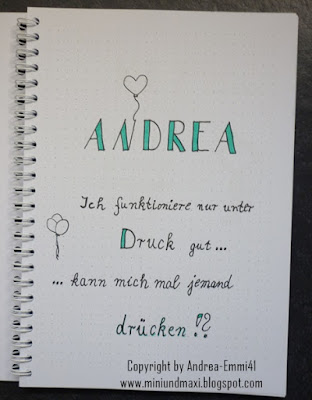 ANDREA
Ich funktioniere nur unter
Druck gut...
... kann mich mal jemand
drücken!?
Copyright by Andrea-Emmi41
www.miniundmaxi.blogspot.com